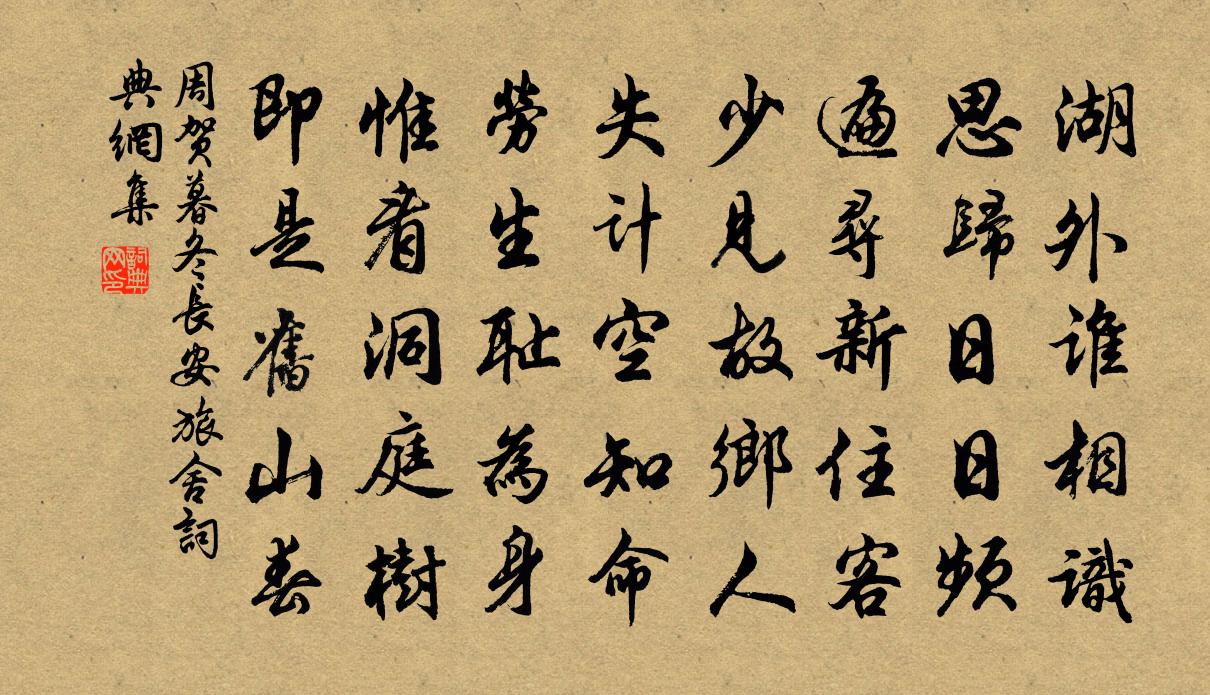 湖外谁相識
思歸日日頻
遍尋新住客
少見故鄉人
失计空知命
勞生耻為身
惟看洞庭樹
即是舊山春
周贺暮冬長安旅舍詞
典網集
詞典
网印